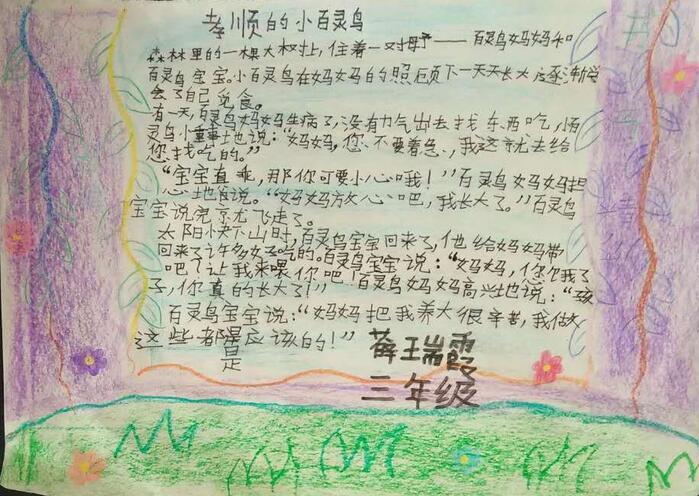 孝顺的小百灵鸟
森林里的一棵大树上,住着一对母子——百灵鸟妈妈和
百灵鸟宝宝。小百灵鸟在妈妈的照顾下一天天长大,逐渐学
会了自己觅食。
有一天,百灵鸟妈妈生病了,没有力气出去找东西吃,小百
灵鸟小事地说:“妈妈,您不要着急,我这就去给
您找吃的。”
“宝宝真乖,那你可要小心哦!”百灵鸟妈妈担
心地说。“妈妈放心吧,我长大了。”百灵鸟
宝宝说完就飞走了。
太阳快下山时,百灵鸟宝宝回来了,他给妈妈带
回来了许多好吃的。百灵鸟宝宝说:“妈妈,你饿了
吧!让我来喂你吧!百灵鸟妈妈高兴地说:“孩
子,你真的长大了!”
百灵鸟宝宝说:“妈妈把我养大很辛苦,我做
这些都是应该的!”
是
薛瑞霞
三年级